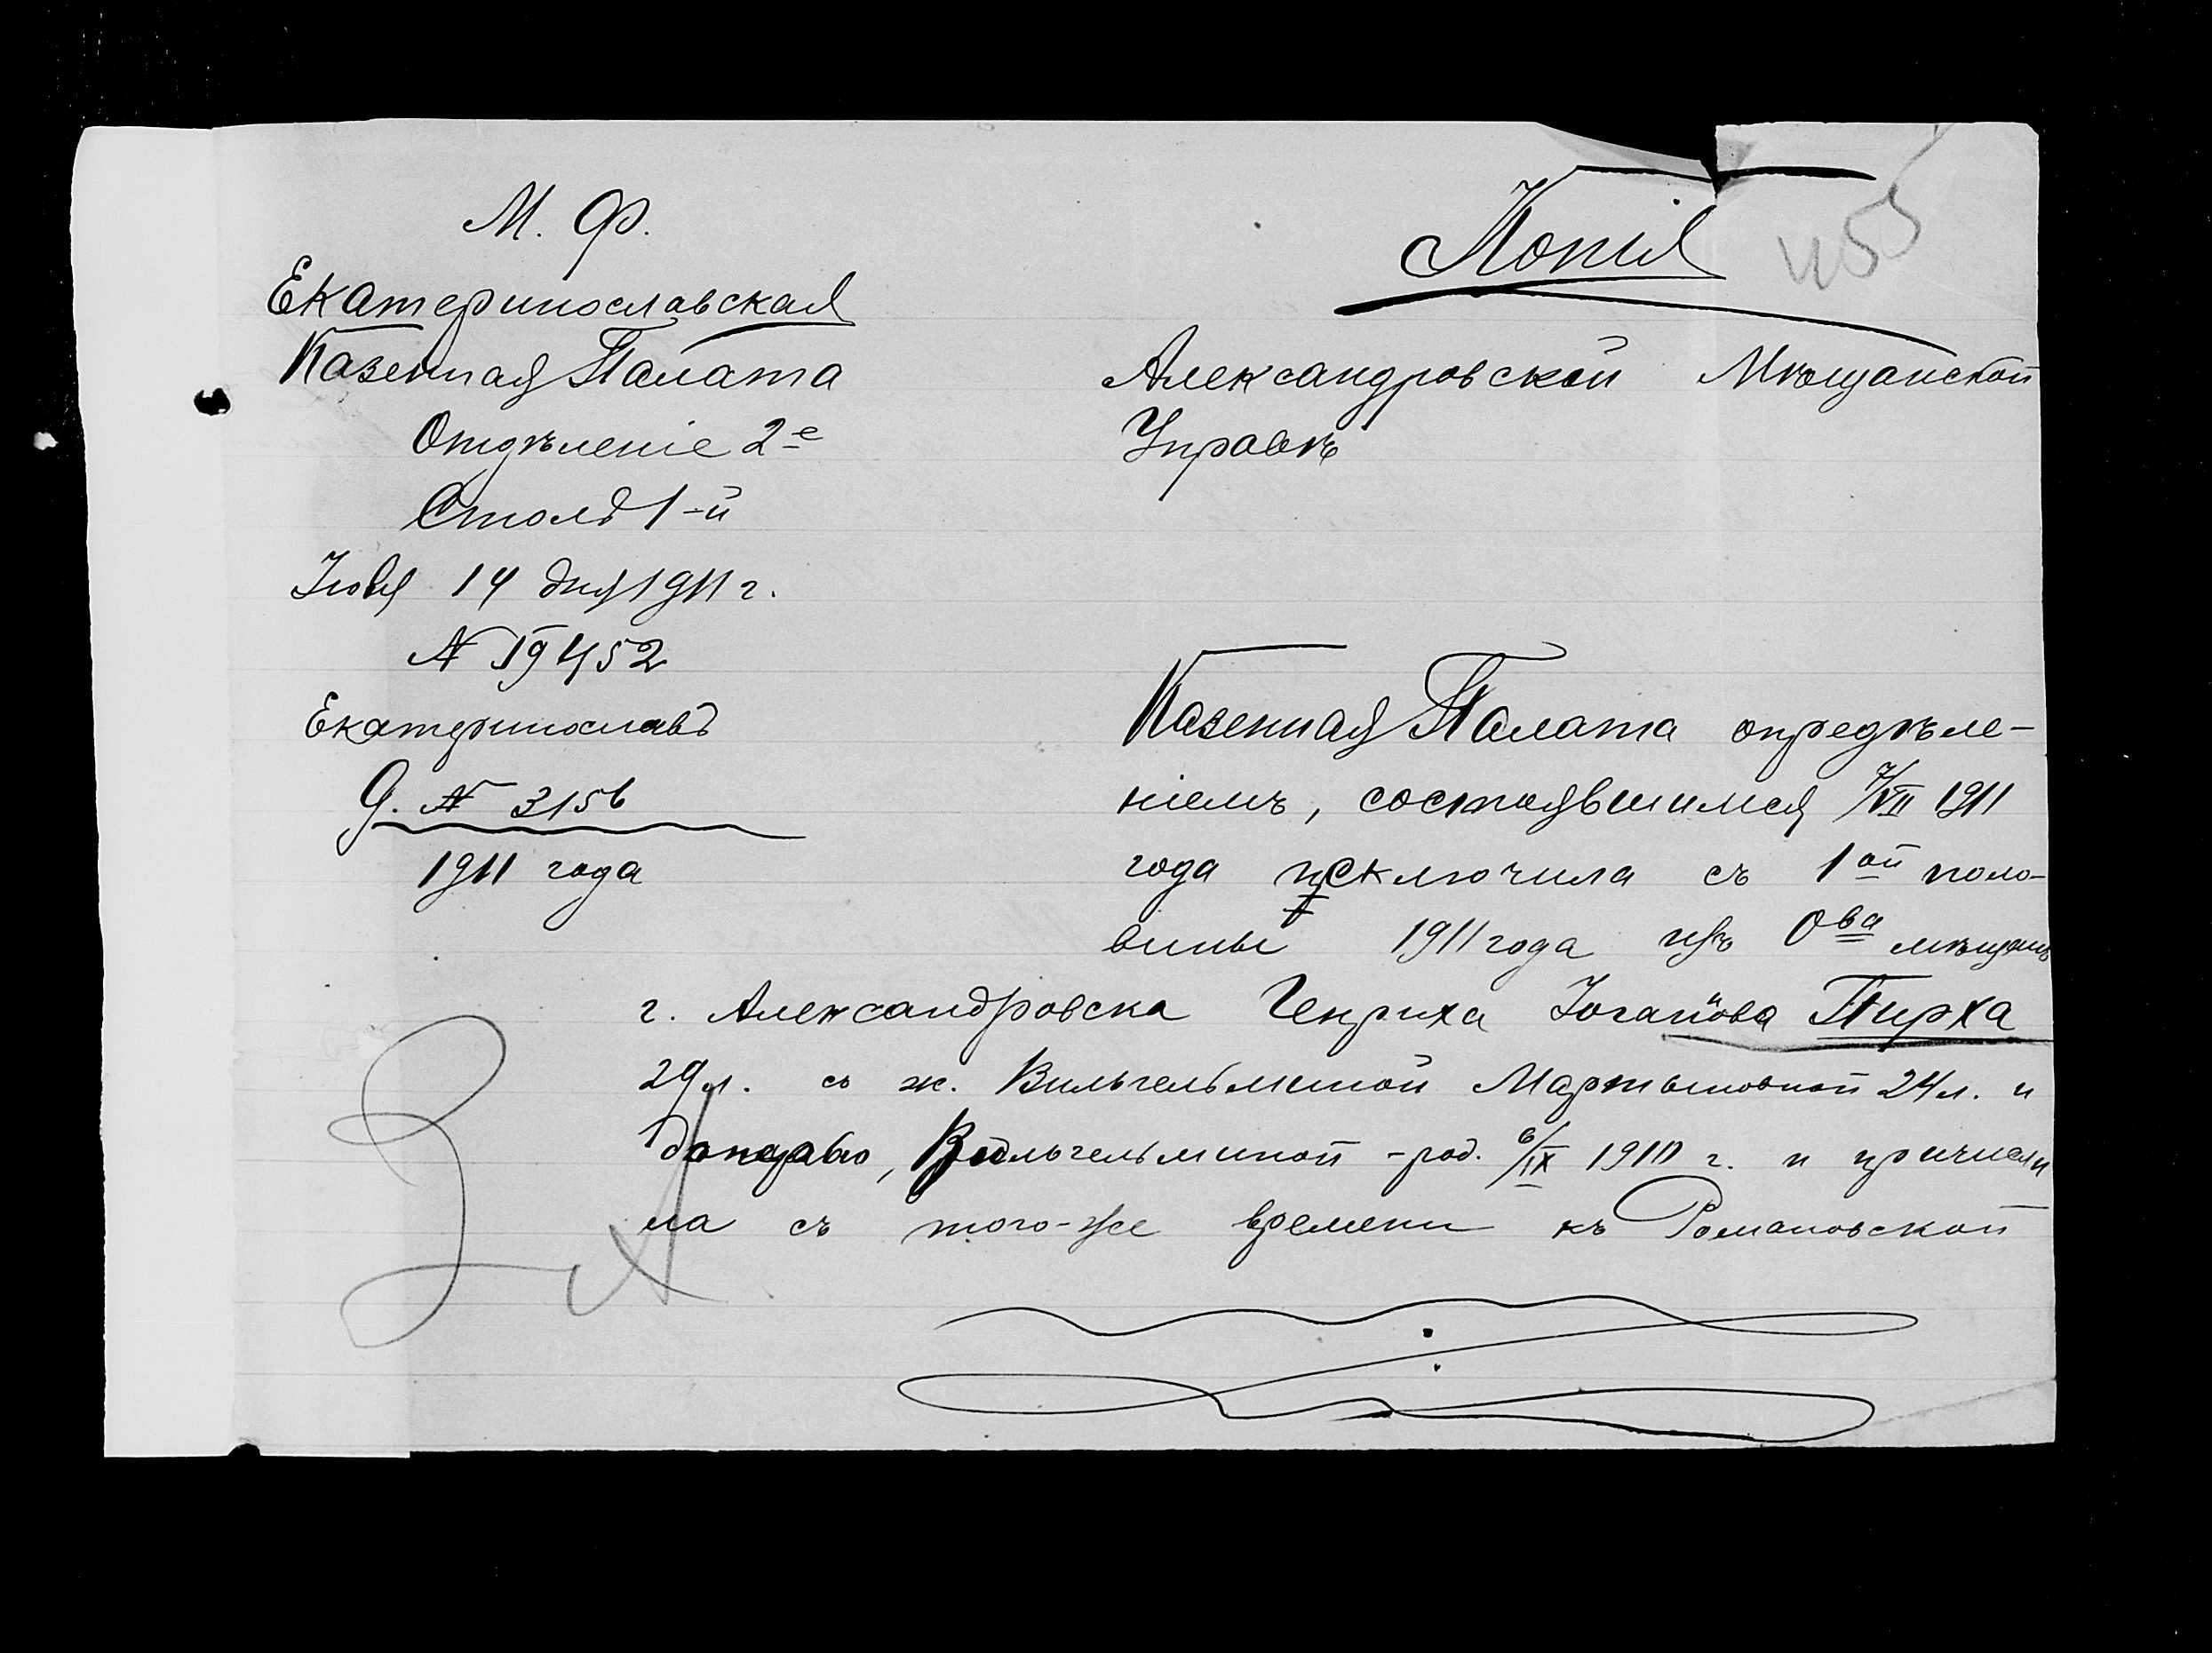 М. Ф.
Екатеринославская
Казенная Палата
Отдѣленіе 2-е
Столъ 1-й
14 дня 1911 г.
№ 19452
Екатеринославъ
Д. № 3156
1911 года
Копія
455
Александровской Мѣщанской
Управѣ
Казенная Палата опредѣле-
ніемъ, состоявшимся 7/VII 1911
года исключила съ 1ой поло-
вины 1911 года изъ Ова мѣщанъ
г. Александровска Генриха Іоганнова Пирха
29 л. съ ж. Вильгельминой Мартыновной 24 л. и
Вильгельминой - род. 6/IX 1910 г. и причисли
ла съ того-же времени къ Романовской